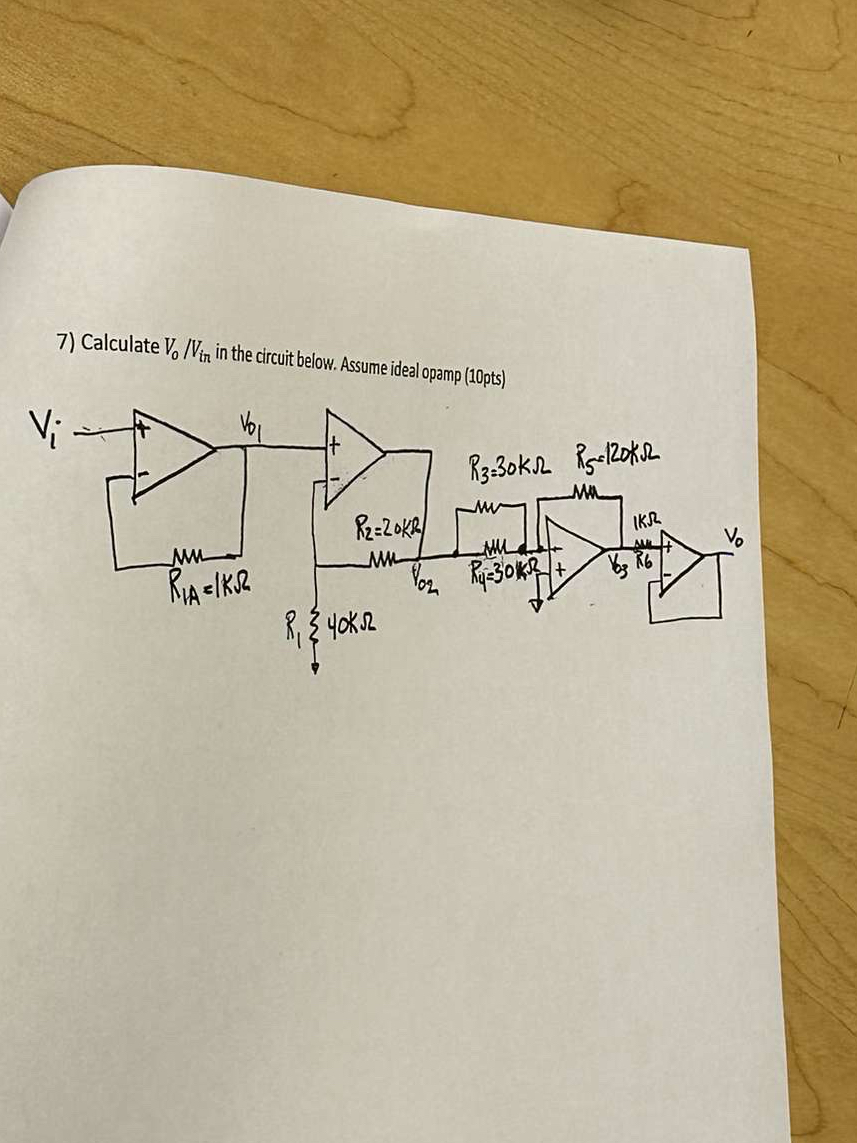 7) Calculate Vₒ /Vᵢₙ in the circuit below. Assume ideal opamp (10pts)
Vi
+
-
Vo1
+
-
R1A=1KΩ
R2=20KΩ
Vo2
R1
40KΩ
R3=30KΩ
R4=30KΩ
R5=120KΩ
-
+
Vo3
1KΩ
R6
+
-
Vo